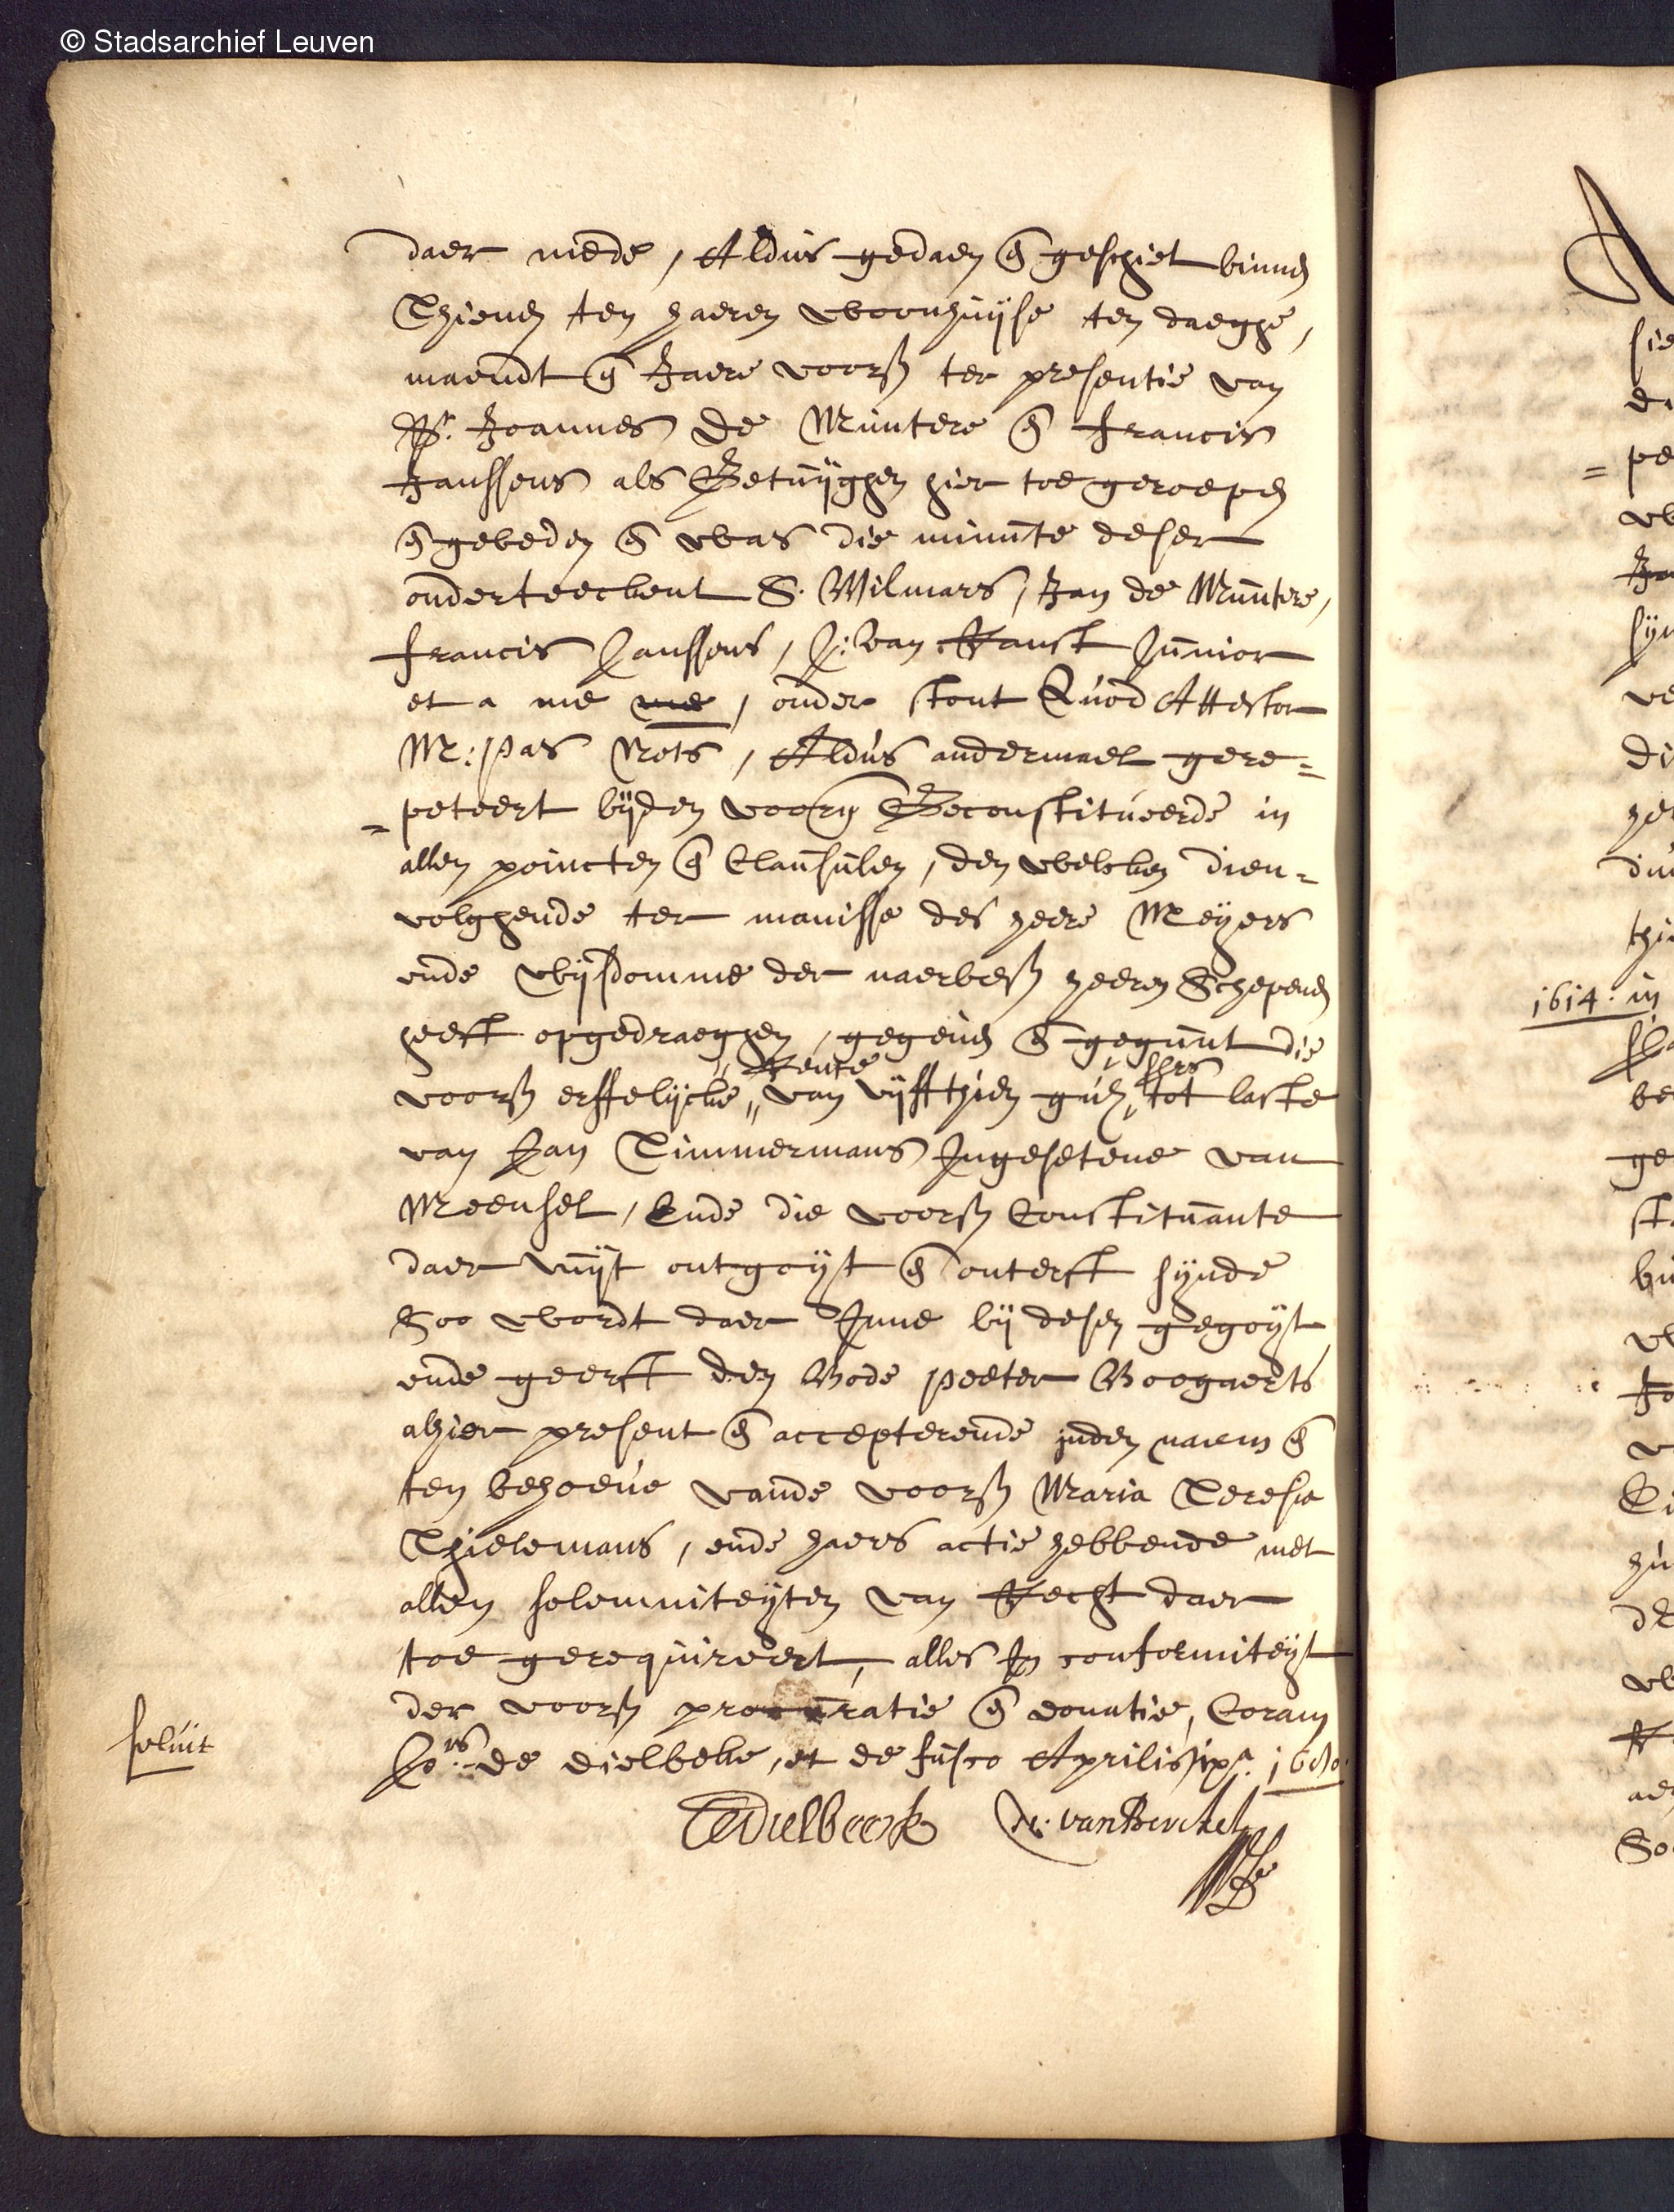 © Stadsarchief Leuven
daer mede, Aldus gedaen en̄ geschiet binnen
Thienen ten haeren woonhuijse ten daeghe,
maendt en̄ Jaere voors ter presentie van
Joannes de Muntere en̄ francis
Janssens als Getuijghen hier toe geroepen
en̄ gebeden en̄ was die minute deser
onderteeckent S. Wilmars, Jan de Muntere,
francis Janssens, J: van Ranst Junior
et a me me, onder stont Quod Attestor
M: pas Nots, Aldus andermael gere=
=peteert bijden voors Geconstitueerde in
allen poincten en̄ Clausulen, den welcken dien=
volghende ter manisse des heere Meijers
ende wijsdomme der naerbes heeren Schepenen
heeft opgedraeghen, gegeven en̄ gegunt die
voors erffelijcke rente van vijffthien guls tot laste
van Jan Timmermans Ingesetene van
Meensel, Ende die voors Constituante
daer uuijt ontgoijt en̄ onterft sijnde
Soo wordt daer Inne bij desen gegoijt
ende geerft den Bode peeter Boogaerts
alhier present en̄ accepterende inden naem en̄
ten behoeve vande voors Maria Teresia
Thielemans, ende haers actie hebbende met
allen solemniteijten van Recht daer
toe gerequireert, alles In conformiteijt
der voors procuratie en̄ donatie, Coram
solvit
Jo.is de dielbeke, et de fusco Aprilis
Dielbeeck van Berchel
1614: in